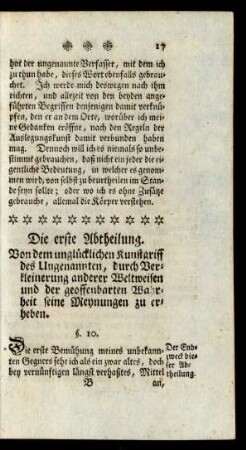 17
hat der ungenannte Verfasser, mit dem ich
zu thun habe, dieses Wort ebenfalls gebrau-
chet. Ich werde mich deswegen nach ihm
richten, und allezeit von den beyden ange-
führten Begriffen denjenigen damit verknü-
pfen, den er an dem Orte, worüber ich mei-
ne Gedanken eröffne, nach den Regeln der
Auslegungskunst damit verbunden haben
mag. Dennoch will ich es niemals so unbe-
stimmt gebrauchen, daß nicht ein jeder die ei-
gentliche Bedeutung, in welcher es genom-
men wird, von selbst zu beurtheilen im Stan-
de seyn sollte; oder wo ich es ohne Zusätze
gebrauche, allemal die Körper verstehen.
Die erste Abtheilung.
Von dem unglücklichen Kunstgriff
des Ungenannten, durch Ver-
kleinerung anderer Weltweisen
und der geoffenbarten Wahr-
heit seine Meynungen zu er-
heben.
§. 10.
Die erste Bemühung meines unbekann-
ten Gegners sehe ich als ein zwar altes, doch
bey vernünftigen längst verhaßtes, Mittel
B an,
Der End-
zweck die-
ser Ab-
theilung.